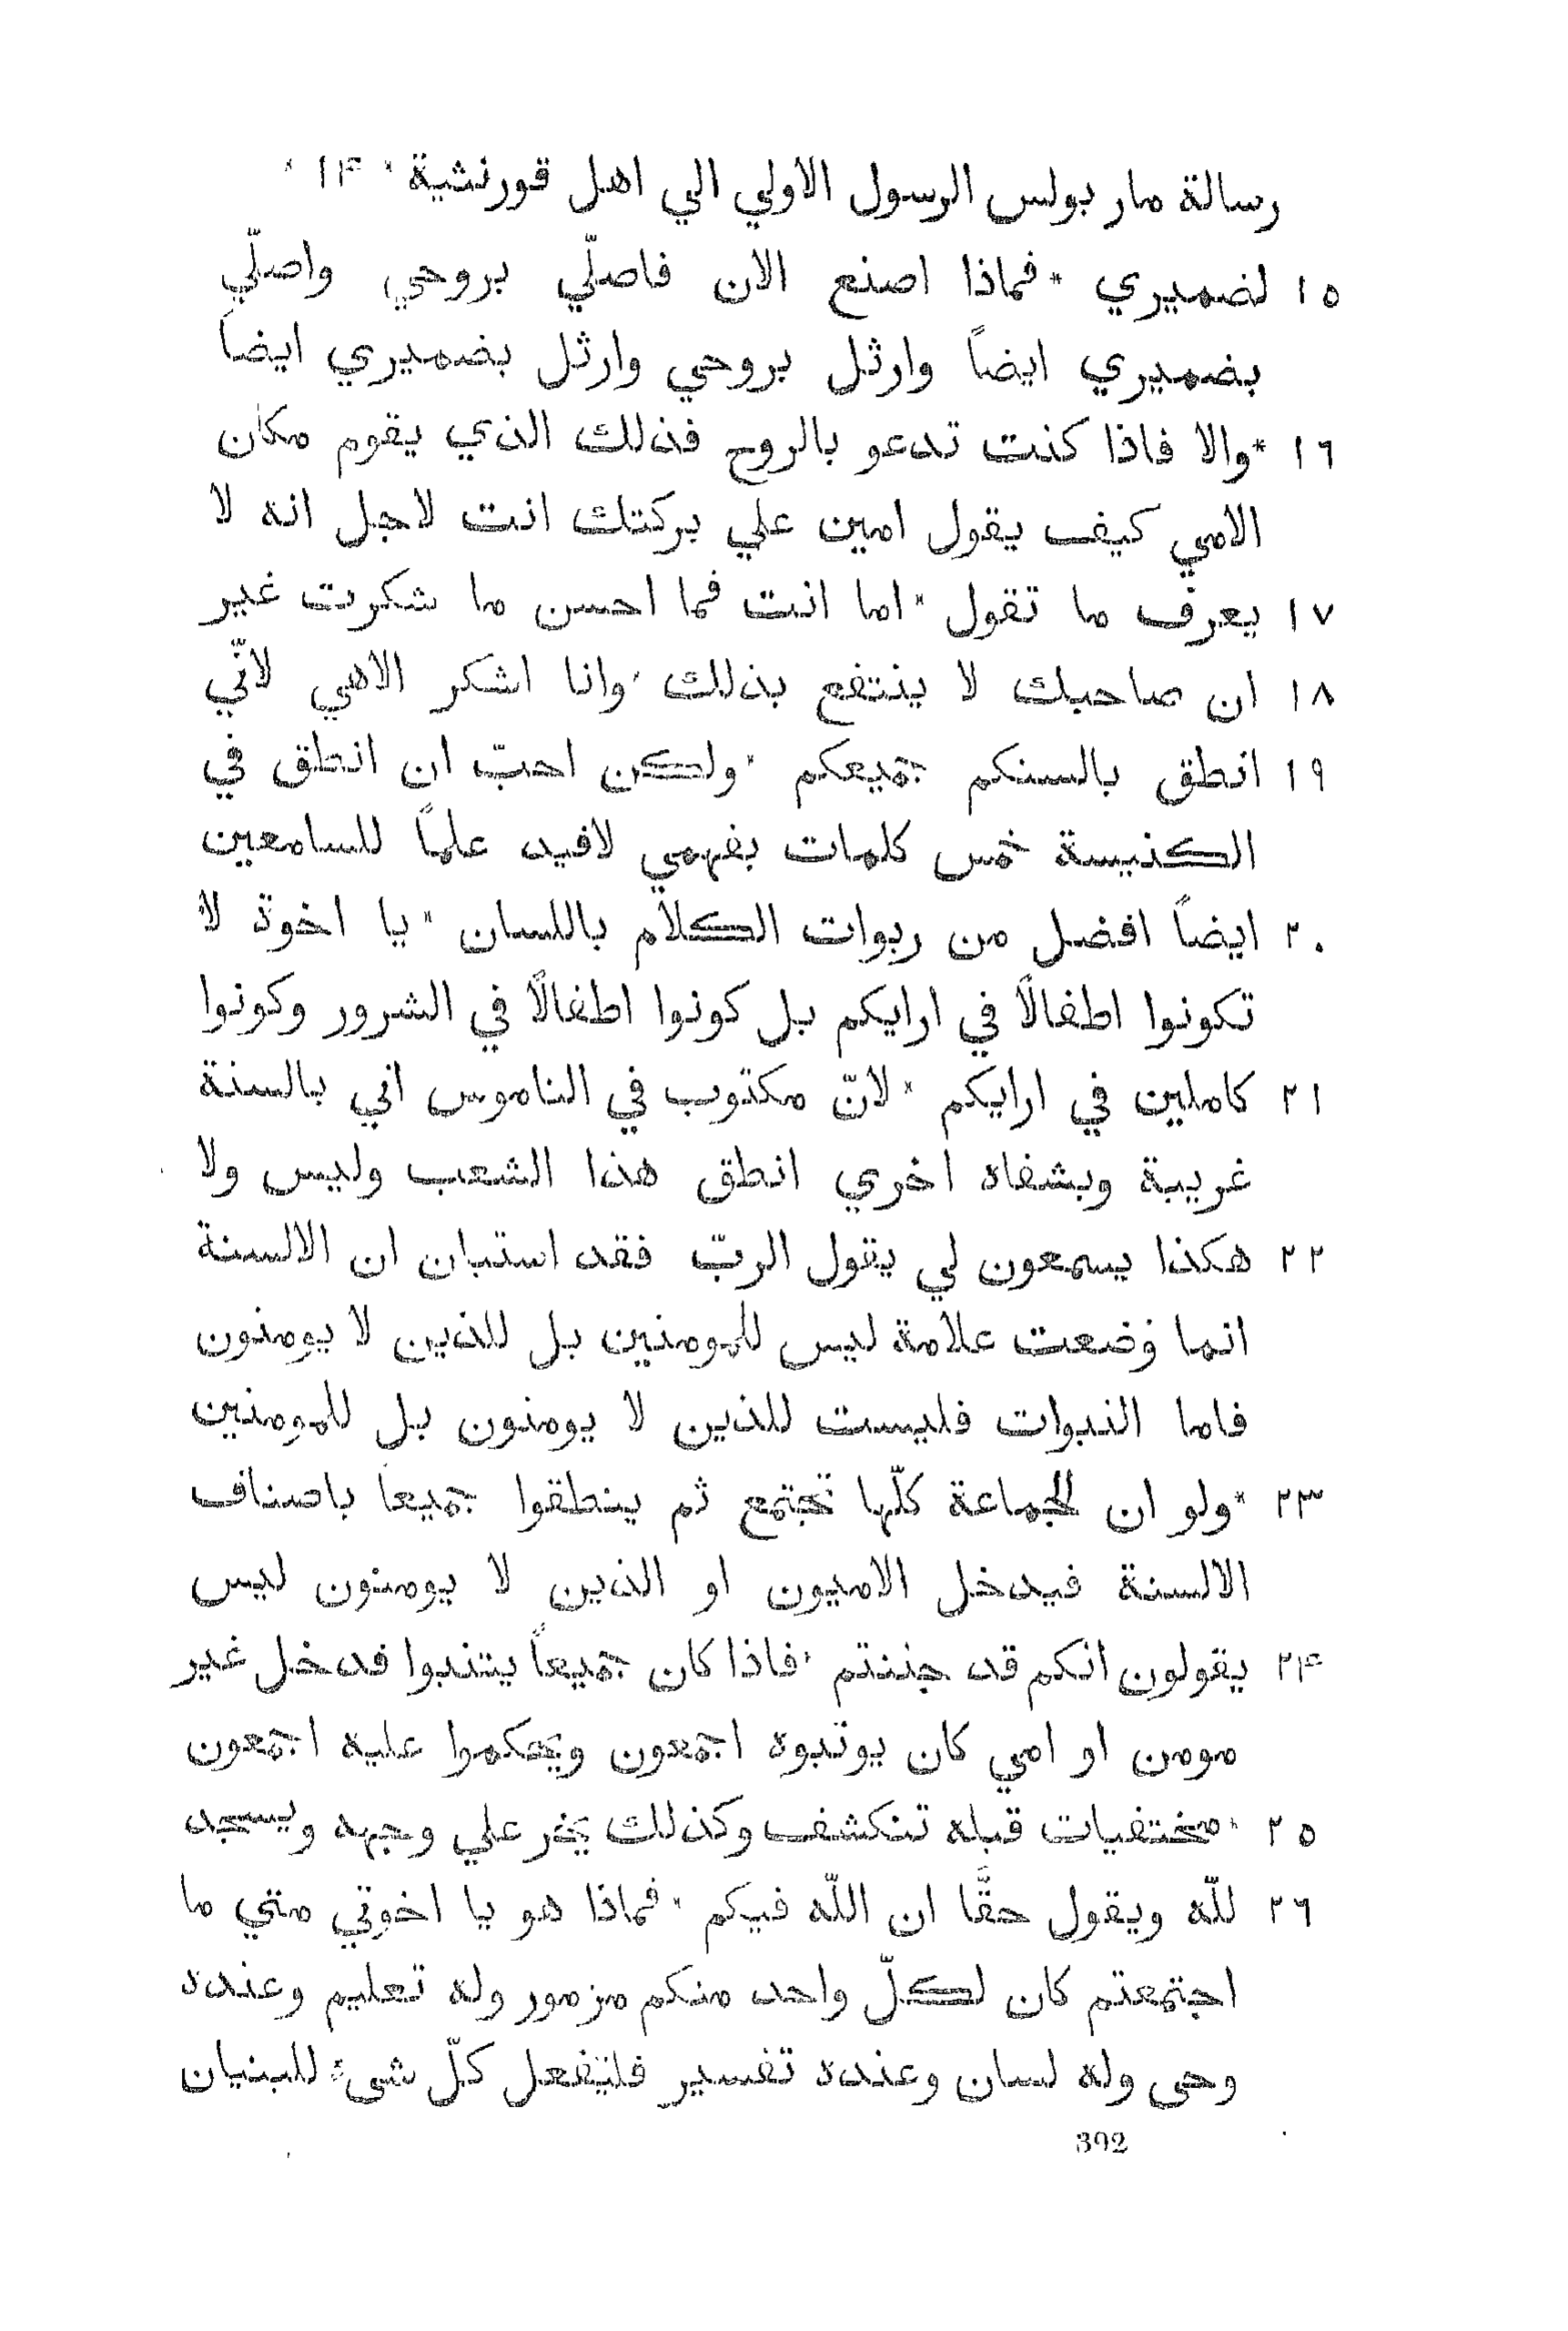 رسالة مار بولس الرسول الاولي الي اهل قورنثية * ١۴ *
١٥ لضميري * فماذا اصنع الان فاصلّي بروحي واصلّي
بضميري ايضاً وارثل بروحي وارثل بضميري ايضاً
١٦ * والا فاذا كنت تدعو بالروح فذلك الذي يقوم مكان
الامي كيف يقول امين علي بركتك انت لاجل انه لا
١٧ يعرف ما تقول * اما انت فما احسن ما شكرت غير
١٨ ان صاحبك لا ينتفع بذلك * وانا اشكر الاهي لانّي
١٩ انطق بالسنكم جميعكم * ولكن احبّ ان انطق في
الكنيسة خمس كلمات بفهمي لافيد علماً للسامعين
٢٠ ايضاً افضل من ربوات الكلام باللسان * يا اخوة لا
تكونوا اطفالًا في ارايكم بل كونوا اطفالًا في الشرور وكونوا
٢١ كاملين في ارايكم * لانّ مكتوب في الناموس اني بالسنة
غريبة وبشفاه اخري انطق هذا الشعب وليس ولا
٢٢ هكذا يسمعون لي يقول الربّ فقد استبان ان الالسنة
انما وُضعت علامة ليس للمومنين بل للذين لا يومنون
فاما النبوات فليست للذين لا يومنون بل للمومنين
٢٣ * ولو ان الجماعة كلّها تجتمع ثم ينطقوا جميعاً باصناف
الالسنة فيدخل الاميون او الذين لا يومنون ليس
٢۴ يقولون انكم قد جننتم * فاذا كان جميعاً يتنبوا فدخل غير
مومن او امي كان يوتبوه اجمعون ويحكموا عليه اجمعون
٢٥ * مختفيات قبله تنكشف وكذلك يخر علي وجهه ويسجد
٢٦ للّه ويقول حقًّا ان اللّه فيكم * فماذا هو يا اخوتي متي ما
اجتمعتم كان لكلّ واحد منكم مزمور وله تعليم وعنده
وحى وله لسان وعنده تفسير فليُفعل كلّ شىء للبنيان
392